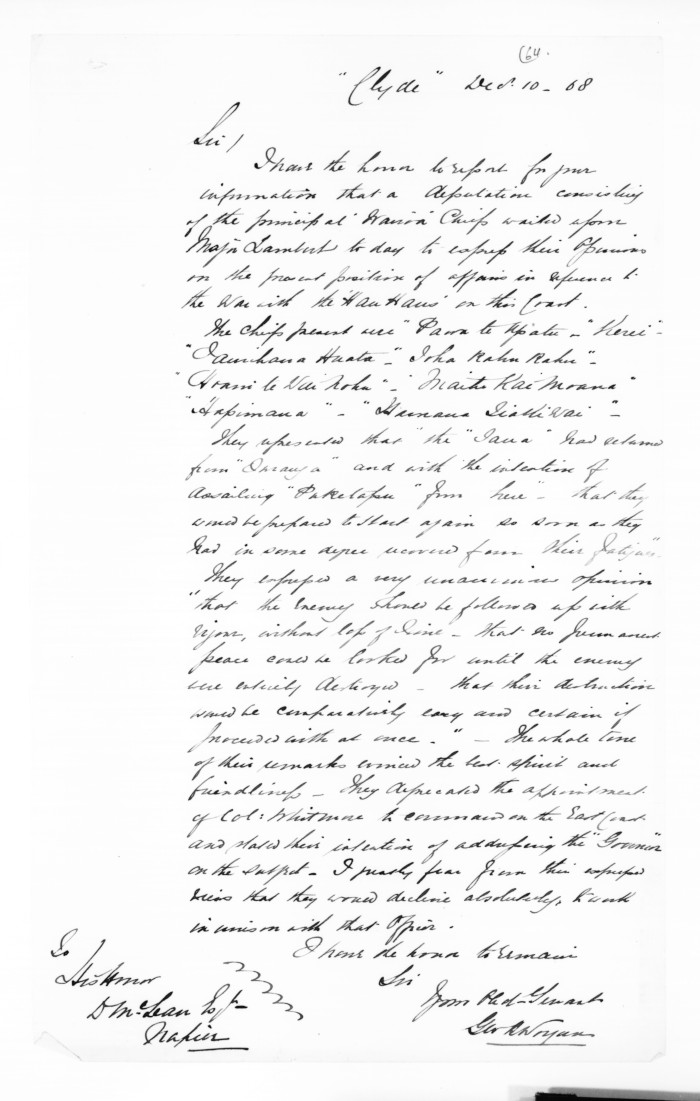 64.
"Clyde" Decr. 10 - 68
Sir/
I have the honor to report for your
information that a deputation consisting
of the principal Wairoa Chiefs waited upon
Major Lambert to day to express their Opinions
on the present position of affairs in reference to
the War with the "Hau Haus" on this Coast.
The Chiefs present were "Paora te Apatu" - "Kerei" -
"Tamihana Huata" - "Ioha Kahu Kahu" -
"Hoani te Wai Kohu" - "Maihi Kai Moana"
"Hapimana" - "Hamana" -
They represented that "the "Taua" had returned
from "Turanga" and with the intention of
assailing "Puketapu" from here" - that they
would be prepared to start again so soon as they
had in some degree recovered from their fatigues.
They expressed a very unanimous opinion
"that the Enemy should be followed up with
vigour, without loss of time - that no permanent
peace could be looked for until the enemy
were entirely destroyed - that their destruction
would be comparatively easy and certain if
proceeded with at once." - The whole tone
of their remarks evinced the best spirit and
friendliness - They deprecated the appointment
of Col: Whitmore to command on the East Coast
and stated their intention of addressing the "Governor"
on the subject - I greatly fear from their expressed
views that they would decline absolutely, to work
in unison with that Officer.
I have the honor to remain
Sir
Your Obed. Servant
Geo R Worgan
To
His Honor
D McLean Esqr
Napier